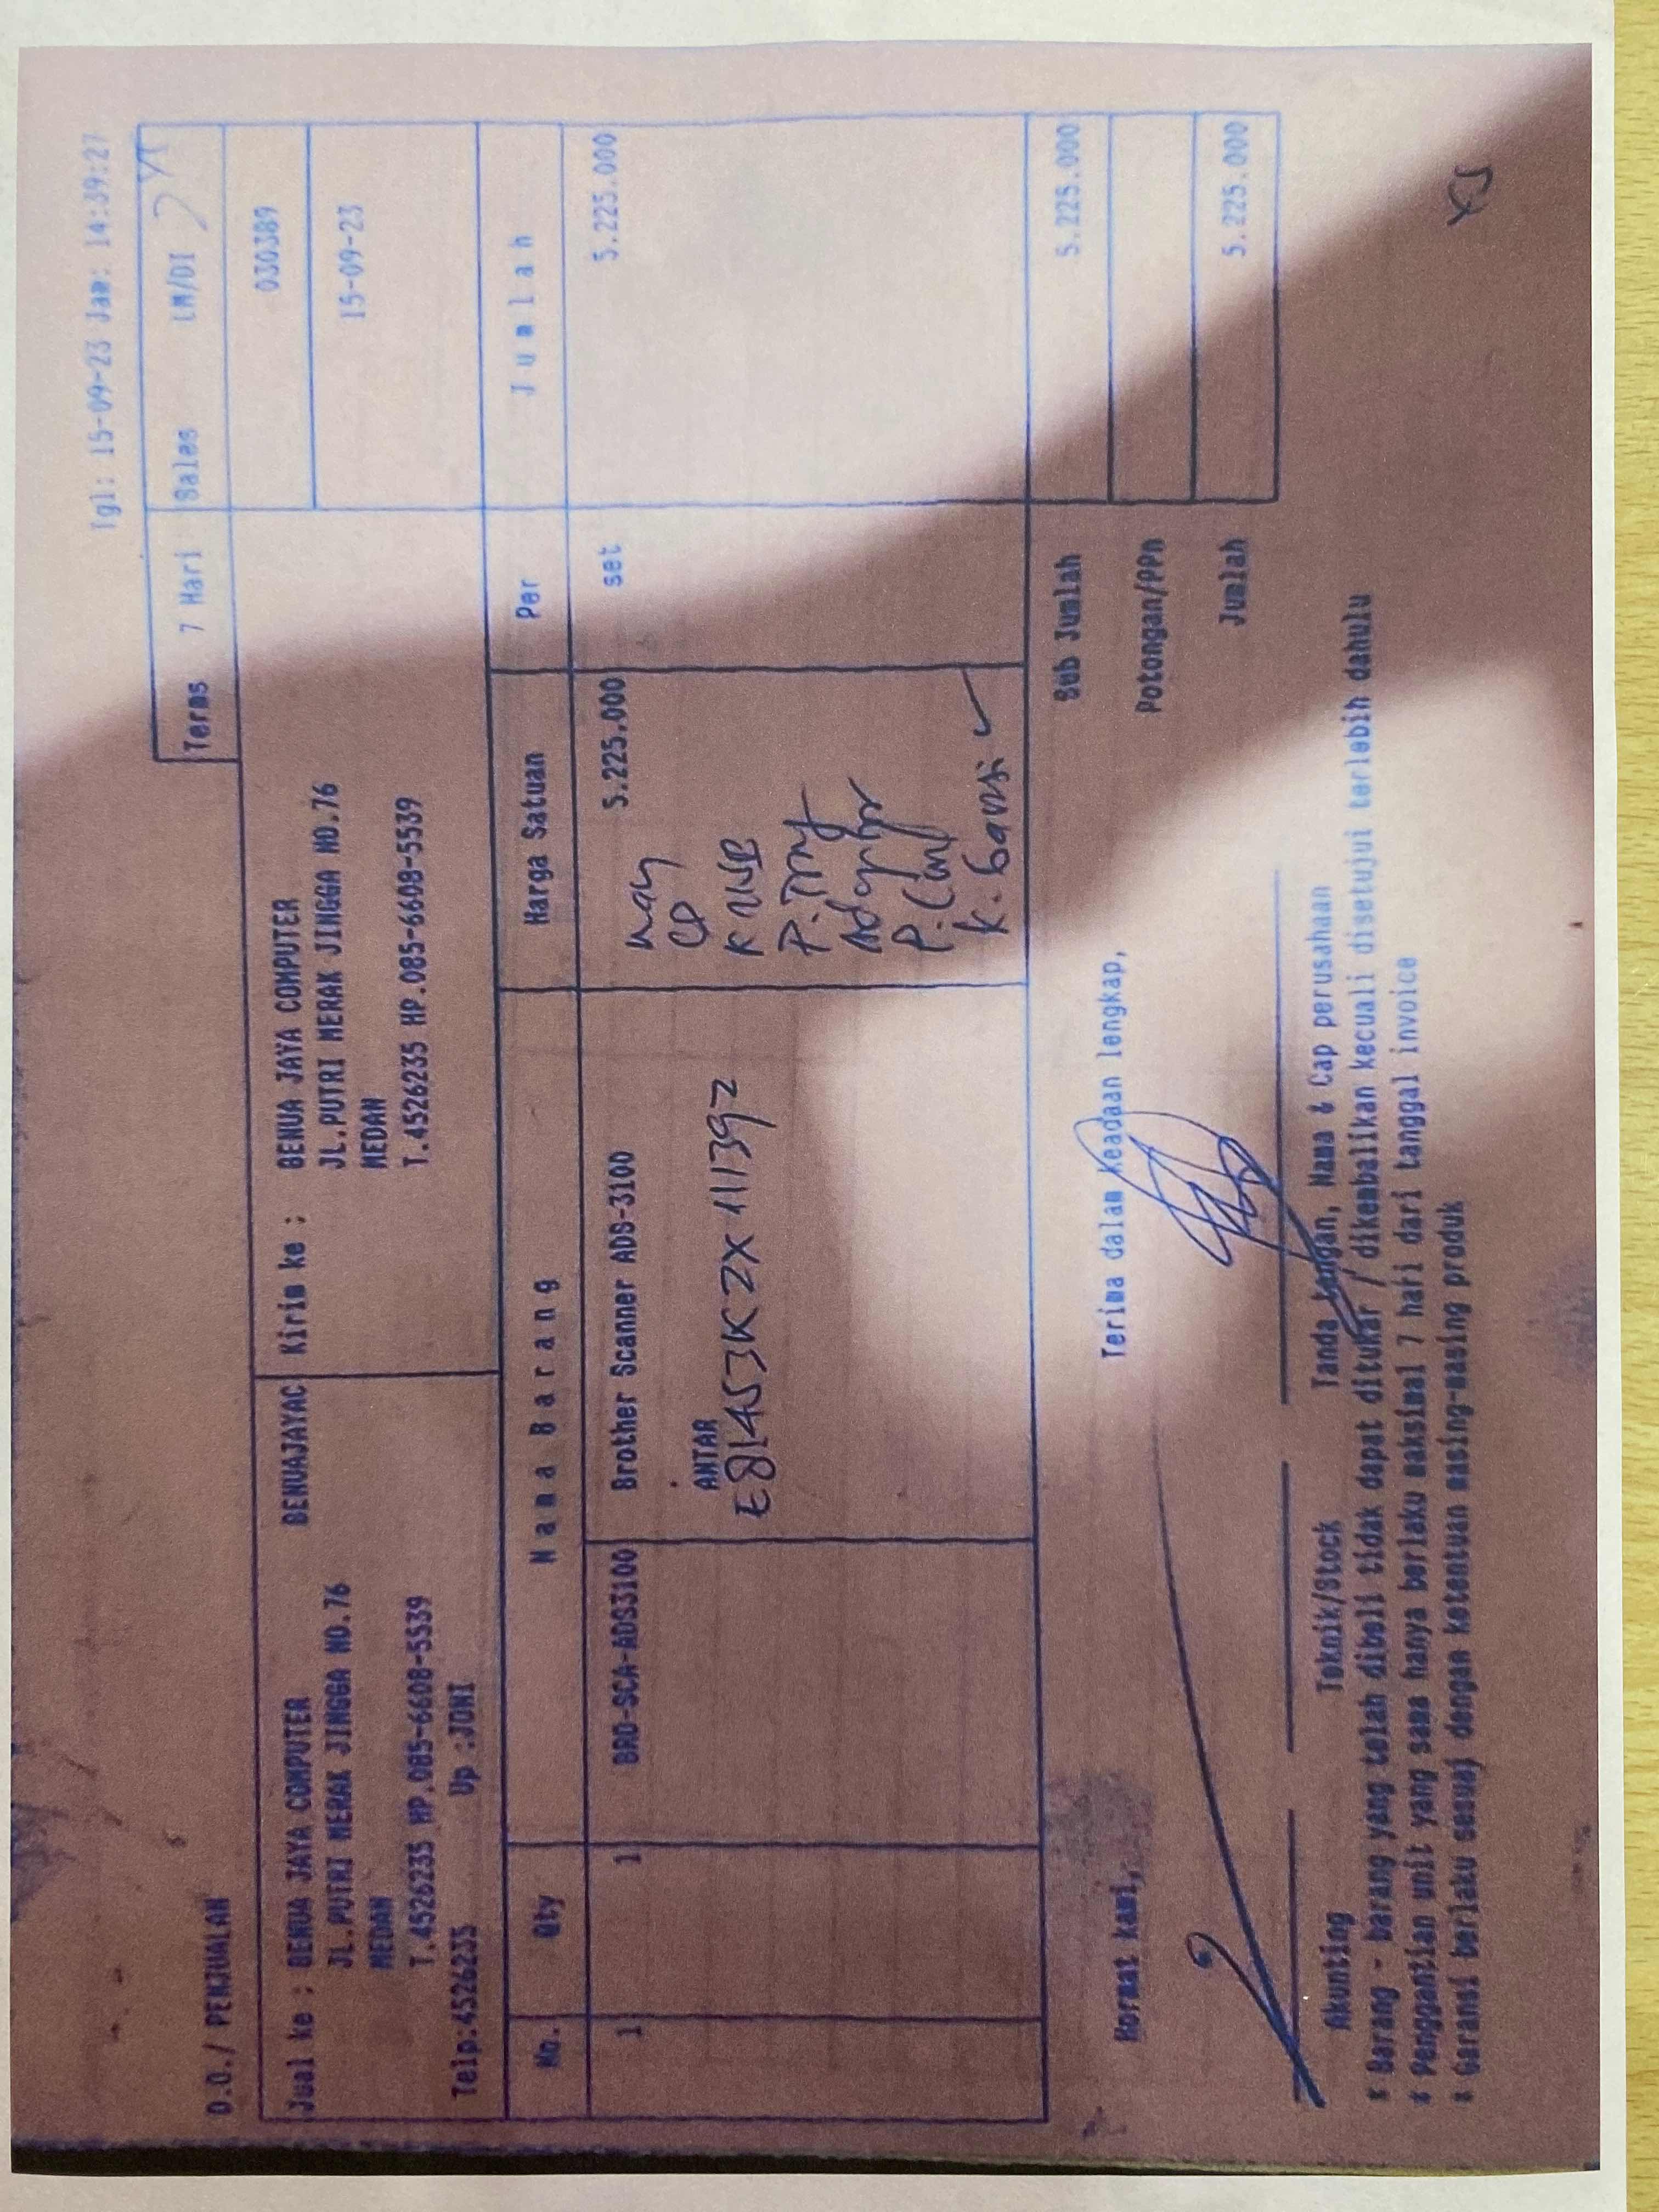 Tgl: 15-09-23 Jam: 14:39:27
D.O./ PENJUALAN
Terms 7 Hari Sales LM/DI
Jual ke : BENUA JAYA COMPUTER BENUAJAYAC
JL.PUTRI MERAK JINGGA NO.76
MEDAN
T.4526235 HP.085-6608-5539
Telp:4526235 Up :JONI
Kirim ke : BENUA JAYA COMPUTER
JL.PUTRI MERAK JINGGA NO.76
MEDAN
T.4526235 HP.085-6608-5539
030389
15-09-23
No. Qty Nama Barang Harga Satuan Per Jumlah
1 1 BRO-SCA-ADS3100 Brother Scanner ADS-3100 5.225.000 set 5.225.000
ANTAR
E81453K2X111392
CD
K USB
Adaptor
K. Garansi
Sub Jumlah 5.225.000
Potongan/PPn
Jumlah 5.225.000
Hormat kami, Terima dalam keadaan lengkap,
Akunting Teknik/Stock Tanda tangan, Nama & Cap perusahaan
* Barang - barang yang telah dibeli tidak dapat ditukar / dikembalikan kecuali disetujui terlebih dahulu
* Penggantian unit yang sama hanya berlaku maksimal 7 hari dari tanggal invoice
* Garansi berlaku sesuai dengan ketentuan masing-masing produk